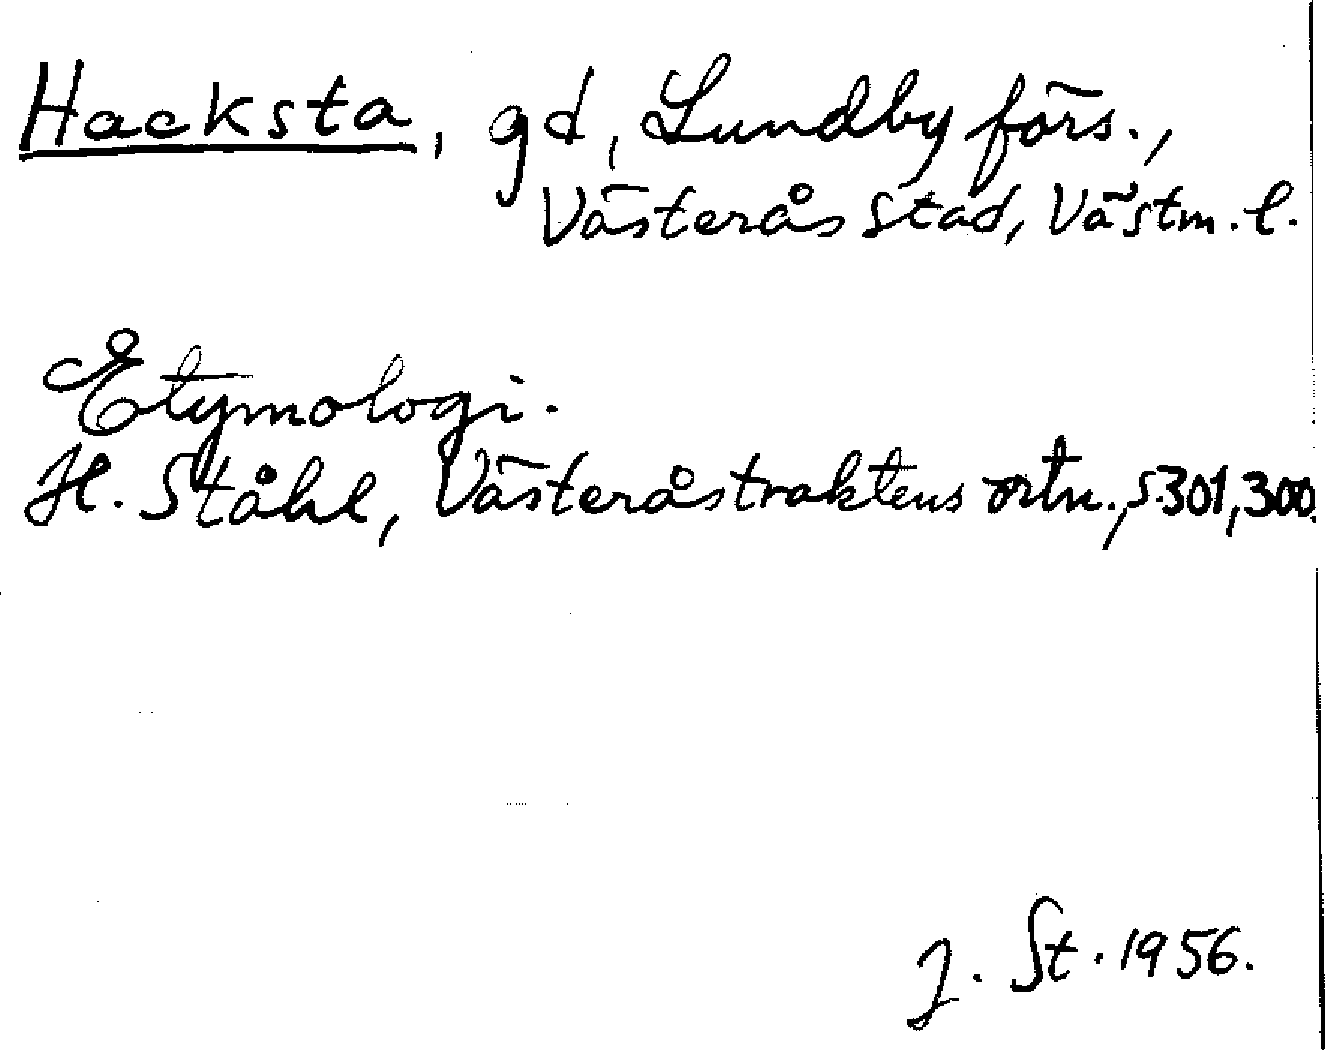 Hacksta, gd, Lundby förs.,
Västerås stad, Västm. l.
Etymologi.
H. Ståhl, Västeråstraktens ortn., s. 301, 300.
J. St. 1956.